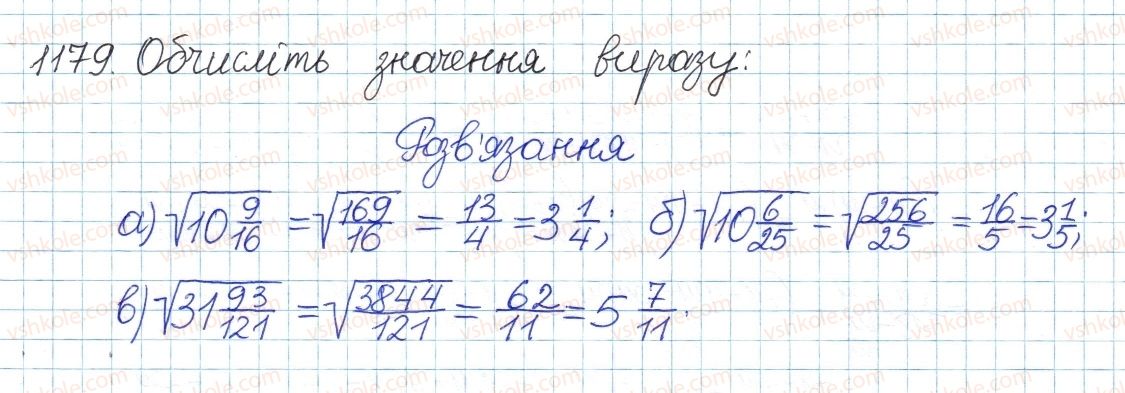 1179. Обчисліть значення виразу:
Розв'язання
а) √(10 9/16) = √(169/16) = 13/4 = 3 1/4; б) √(10 6/25) = √(256/25) = 16/5 = 3 1/5;
в) √(31 93/121) = √(3844/121) = 62/11 = 5 7/11.